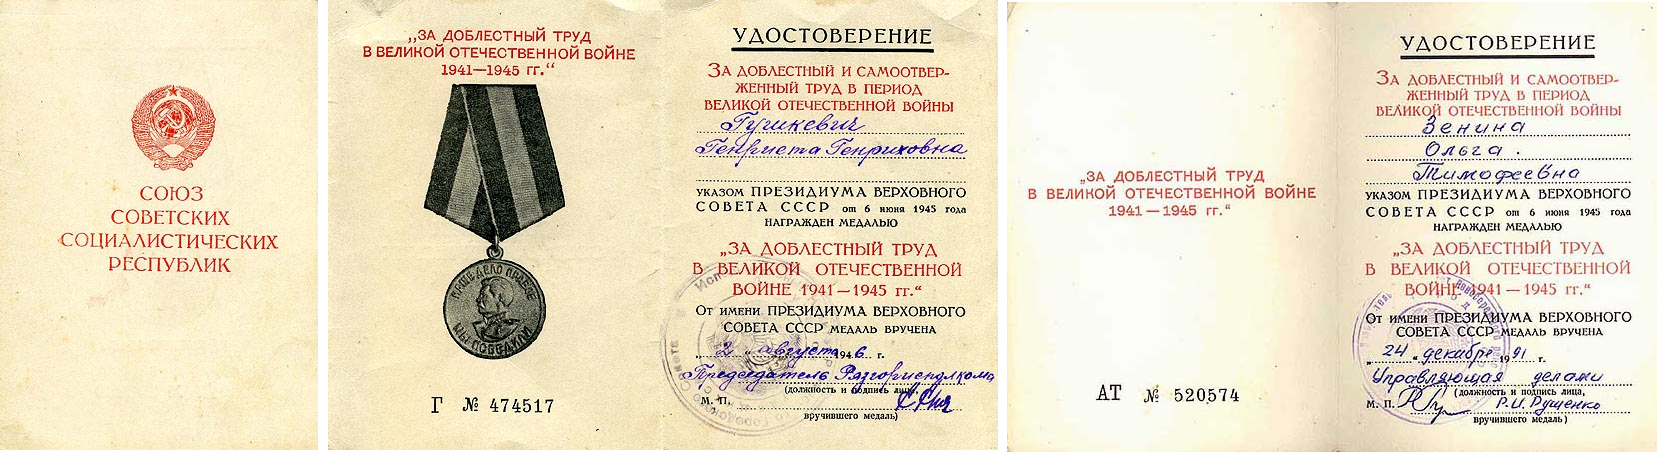 СОЮЗ
СОВЕТСКИХ
СОЦИАЛИСТИЧЕСКИХ
РЕСПУБЛИК
„ЗА ДОБЛЕСТНЫЙ ТРУД
В ВЕЛИКОЙ ОТЕЧЕСТВЕННОЙ ВОЙНЕ
1941—1945 гг.“
НАШЕ ДЕЛО ПРАВОЕ
МЫ ПОБЕДИЛИ
Г № 474517
УДОСТОВЕРЕНИЕ
ЗА ДОБЛЕСТНЫЙ И САМООТВЕР-
ЖЕННЫЙ ТРУД В ПЕРИОД
ВЕЛИКОЙ ОТЕЧЕСТВЕННОЙ ВОЙНЫ
Гушкевич
Генриета Генриховна
УКАЗОМ ПРЕЗИДИУМА ВЕРХОВНОГО
СОВЕТА СССР от 6 июня 1945 года
НАГРАЖДЕН МЕДАЛЬЮ
„ЗА ДОБЛЕСТНЫЙ ТРУД
В ВЕЛИКОЙ ОТЕЧЕСТВЕННОЙ
ВОЙНЕ 1941—1945 гг.“
От имени ПРЕЗИДИУМА ВЕРХОВНОГО
СОВЕТА СССР МЕДАЛЬ ВРУЧЕНА
„2“ августа 1946 г.
Председатель
(должность и подпись лица,
М. П.
вручившего медаль)
„ЗА ДОБЛЕСТНЫЙ ТРУД
В ВЕЛИКОЙ ОТЕЧЕСТВЕННОЙ ВОЙНЕ
1941—1945 гг.“
АТ № 520574
УДОСТОВЕРЕНИЕ
ЗА ДОБЛЕСТНЫЙ И САМООТВЕР-
ЖЕННЫЙ ТРУД В ПЕРИОД
ВЕЛИКОЙ ОТЕЧЕСТВЕННОЙ ВОЙНЫ
Зенина
Ольга.
Тимофеевна
УКАЗОМ ПРЕЗИДИУМА ВЕРХОВНОГО
СОВЕТА СССР от 6 июня 1945 года
НАГРАЖДЕН МЕДАЛЬЮ
„ЗА ДОБЛЕСТНЫЙ ТРУД
В ВЕЛИКОЙ ОТЕЧЕСТВЕННОЙ
ВОЙНЕ 1941—1945 гг.“
От имени ПРЕЗИДИУМА ВЕРХОВНОГО
СОВЕТА СССР МЕДАЛЬ ВРУЧЕНА
„24“ декабря 1991 г.
Управляющая делами
(должность и подпись лица,
М. П. Р.И. Рущенко
вручившего медаль)